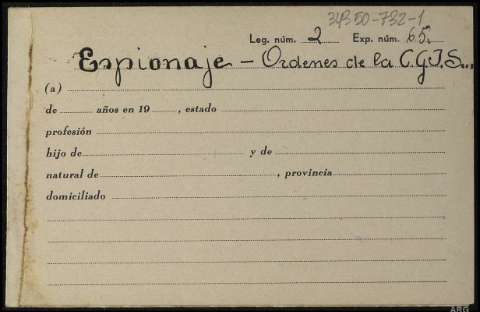 34350-732-1
Leg. núm. 2 Exp. núm. 65.
Espionaje - Ordenes de la C.G.T.S..,
(a)
de años en 19 , estado
profesión
hijo de y de
natural de , provincia
domiciliado
ARG